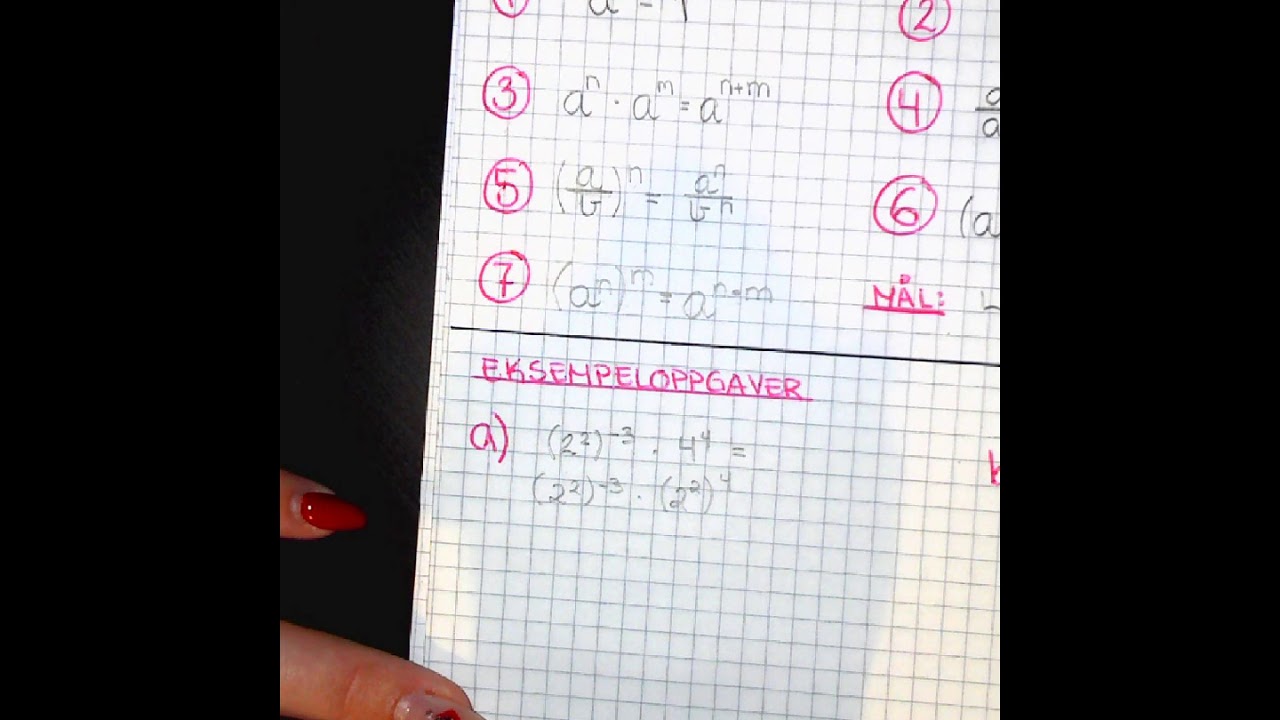 ① a = 1 ②
③ aⁿ · aᵐ = aⁿ⁺ᵐ ④ a/a
⑤ (a/b)ⁿ = aⁿ/bⁿ ⑥ (a
⑦ (aⁿ)ᵐ = aⁿ·ᵐ MÅL:
EKSEMPELOPPGAVER
a) (2²)⁻³ · 4⁴ =
(2²)⁻³ · (2²)⁴